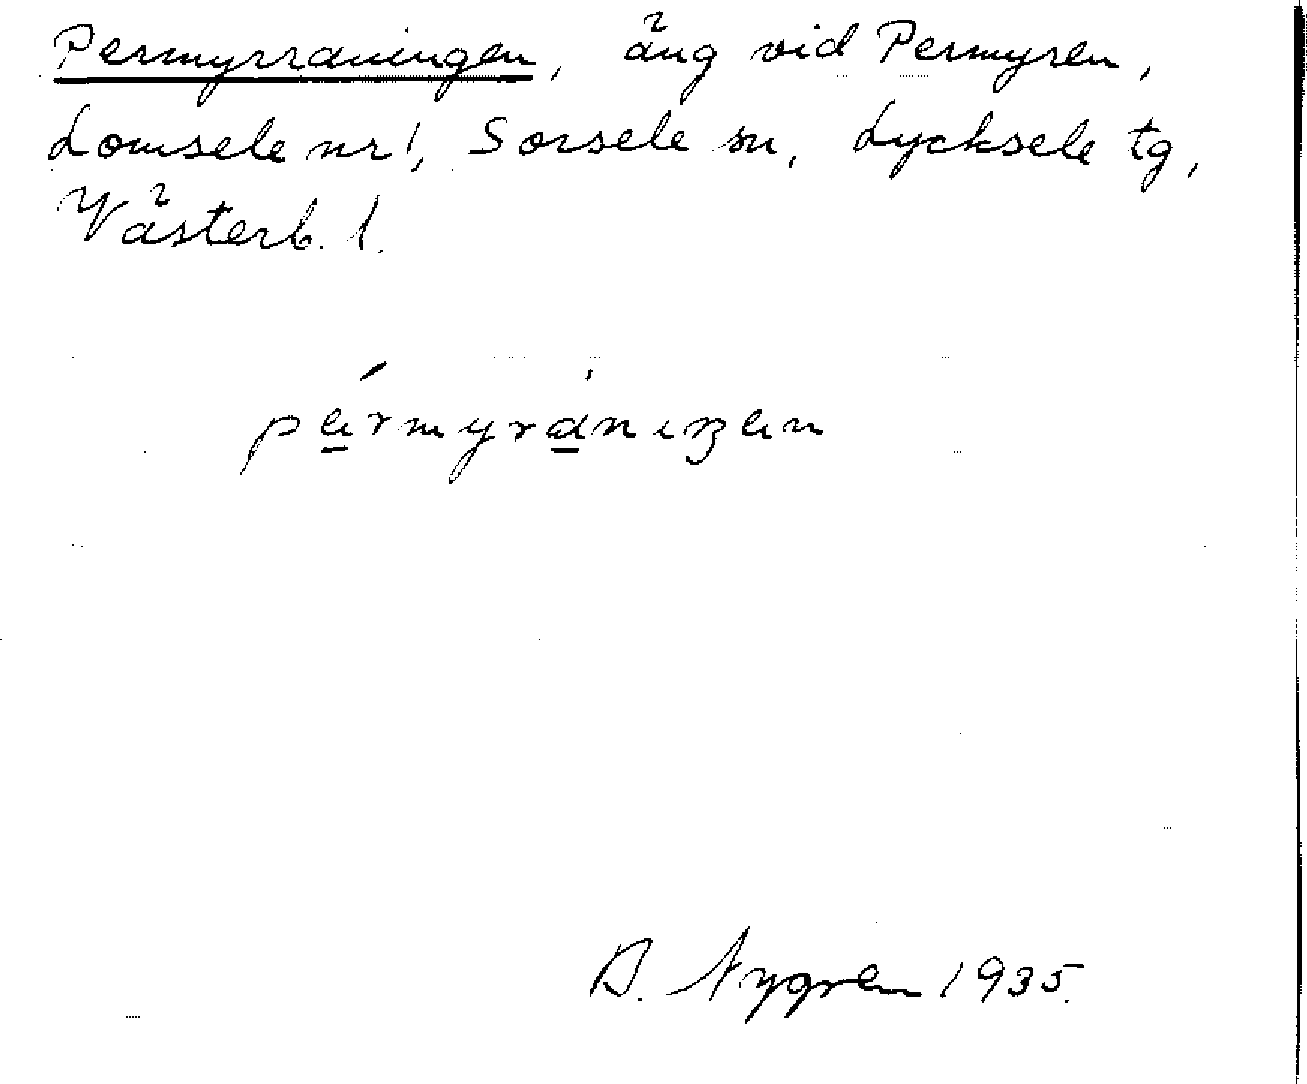 Permyrraningen, äng vid Permyren,
Lomsele nr 1, Sorsele sn, Lycksele tg,
Västerb. l.
A. Nygren 1935.